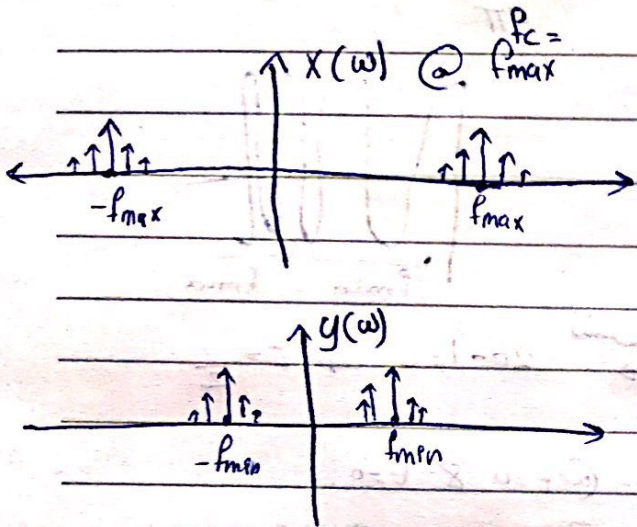 fc =
X(ω) @ fmax
-fmax
fmax
y(ω)
-fmin
fmin